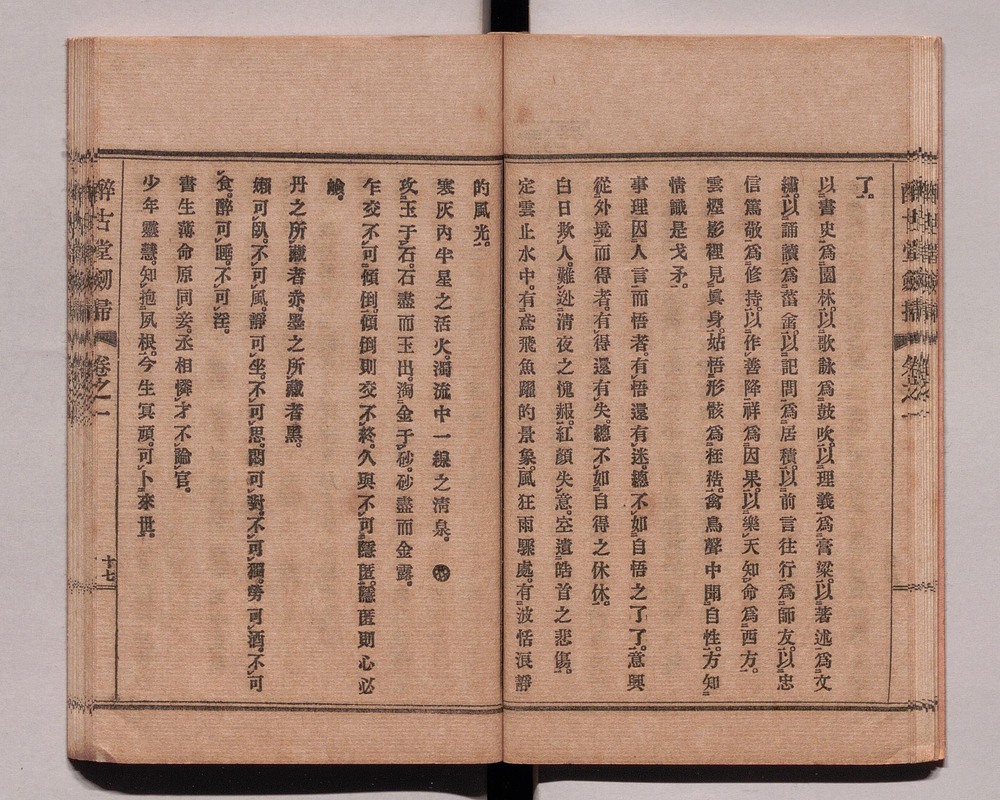 了。
以書史爲園林。以歌詠爲鼓吹。以理義爲膏粱。以著述爲文
繡。以誦讀爲菑畬。以記問爲居積。以前言往行爲師友。以忠
信篤敬爲修持。以作善降祥爲因果。以樂天知命爲西方。
雲煙影裡見眞身。始悟形骸爲桎梏。禽鳥聲中聞自性。方知
情識是戈矛。
事理因人言而悟者。有悟還有迷。總不如自悟之了了。意興
從外境而得者。有得還有失。總不如自得之休休。
白日欺人。難逃淸夜之愧赧。紅顏失意。空遺皓首之悲傷。
定雲止水中。有鳶飛魚躍的景象。風狂雨驟處。有波恬浪靜
的風光。
寒灰內半星之活火。濁流中一線之淸泉。
攻玉于石。石盡而玉出。淘金于砂。砂盡而金露。
乍交不可傾倒。傾倒則交不終。久與不可隱匿。隱匿則心必
嶮。
丹之所藏者赤。墨之所藏者黑。
嬾可臥。不可風。靜可坐。不可思。悶可對。不可獨。勞可酒。不可
食。醉可睡。不可淫。
書生薄命原同妾。丞相憐才不論官。
少年靈慧。知抱夙根。今生冥頑。可卜來世。
醉古堂劒掃
卷之一
十七